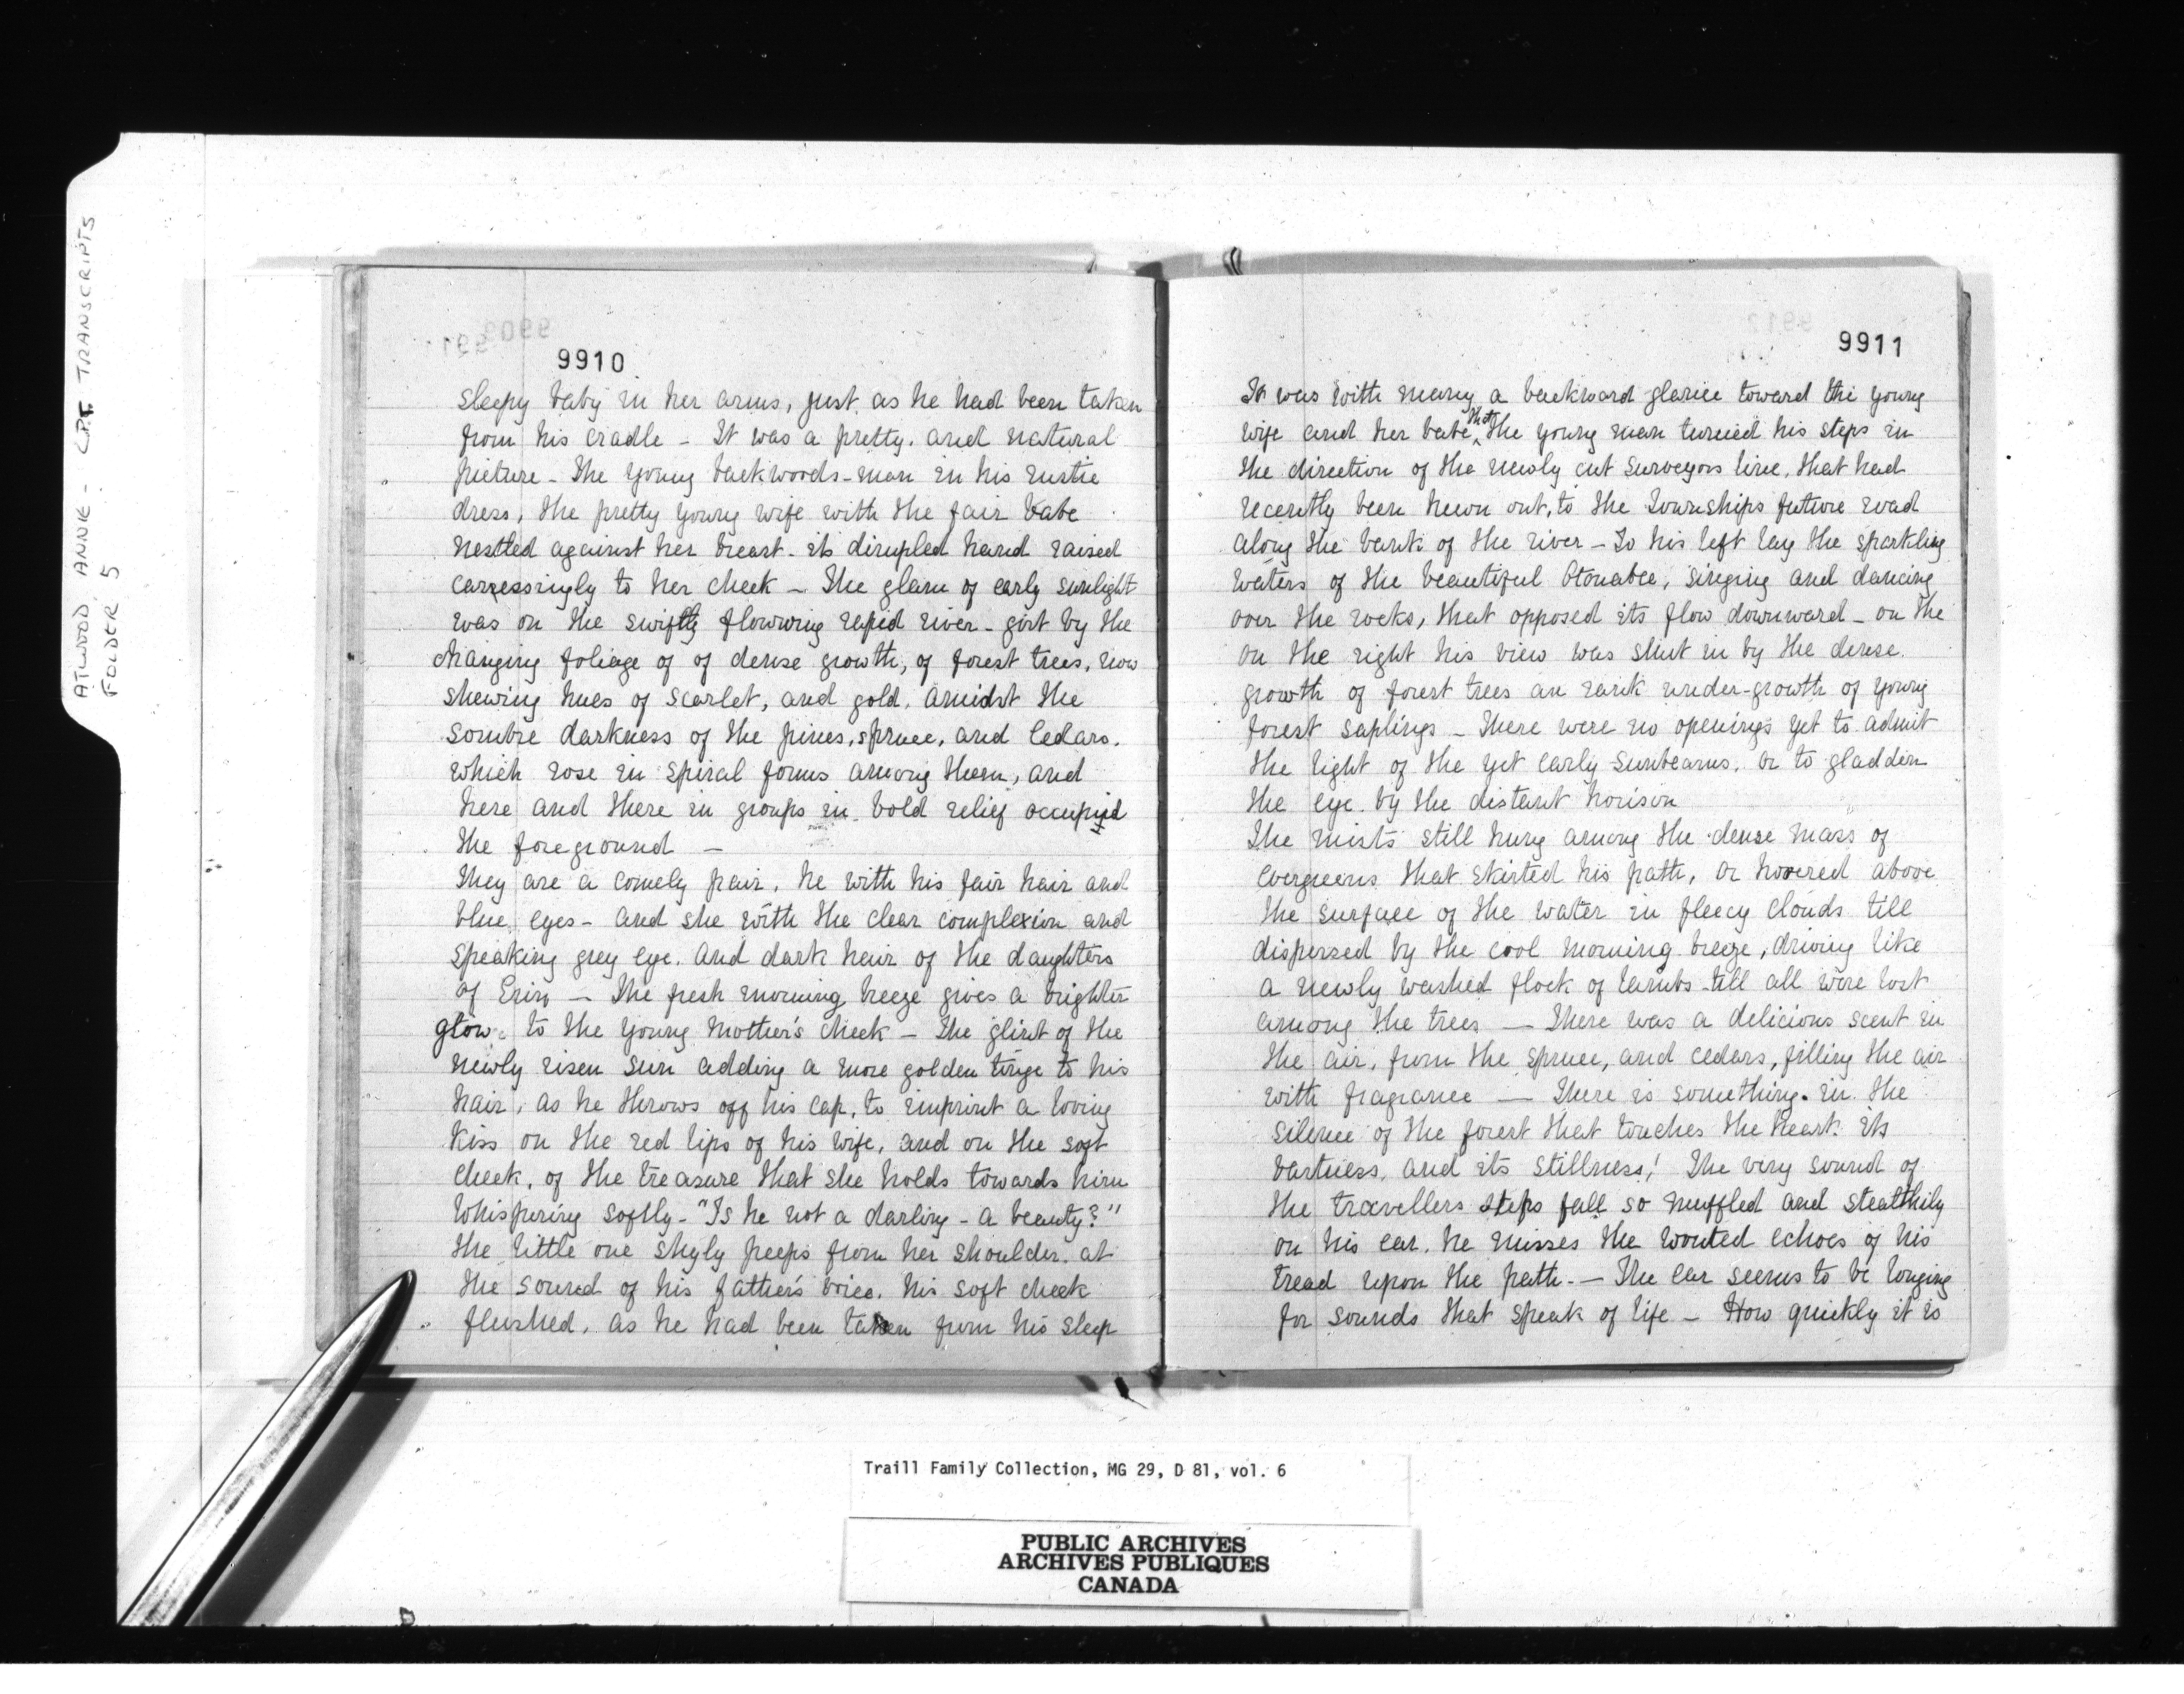 ATWOOD, ANNIE - C.P.T. TRANSCRIPTS
FOLDER 5
9910
sleepy baby in her arms, just as he had been taken
from his cradle - It was a pretty. and natural
picture - The young backwoods-man in his rustic
dress, the pretty young wife with the fair babe
nestled against her breast - its dimpled hand raised
carressingly to her cheek - The glam of early sunlight
was on the swiftly flowwing rapid river - girt by the
changing foliage of of dense growth, of forest trees, now
shewing hues of scarlet, and gold, amidst the
sombre darkness of the pines, spruce, and Cedars.
which rose in spiral forms among them, and
here and there in groups in bold relief occupied
the foreground -
They are a comely pair, he with his fair hair and
blue eyes - and she with the clear complexion and
speaking grey eye. and dark hair of the daughters
of Erin - The fresh morning breeze gives a brighter
glow to the young mother's cheek - The glint of the
newly risen sun adding a more golden tinge to his
hair, as he throws off his cap, to imprint a loving
kiss on the red lips of his wife, and on the soft
cheek, of the treasure that she holds towards him
whispering softly - "Is he not a darling - a beauty?"
The little one shyly peeps from her shoulder. at
the sound of his father's voice. his soft cheek
flushed. as he had been taken from his sleep
9911
It was with many a backward glance toward the young
wife and her babe, that the young man turned his steps in
the direction of the newly cut surveyors line. that had
recently been hewn out, to the Townships future road
along the bank of the river - To his left lay the sparkling
waters of the beautiful Otonabee, singing and dancing
over the rocks, that opposed its flow downward - on the
on the right his view was shut in by the dense.
growth of forest trees an rank under-growth of young
forest saplings - There were no openings yet to admit
the light of the yet early sunbeams. or to gladden
the eye. by the distant horison
The mists still hung among the dense mass of
evergreens that skirted his path, or hovered above
the surface of the water in fleecy clouds till
dispersed by the cool morning breeze, driving like
a newly washed flock of lambs - till all were lost
among the trees — There was a delicious scent in
the air, from the spruce, and cedars, filling the air
with fragrance — There is something. in the
silence of the forest that touches the heart. its
vastness, and its stillness! The very sound of
the travellers steps fall so muffled and stealthily
on his ear. he misses the wonted echoes of his
tread upon the path. - The ear seems to be longing
for sounds that speak of life - How quickly it is
Traill Family Collection, MG 29, D 81, vol. 6
PUBLIC ARCHIVES
ARCHIVES PUBLIQUES
CANADA